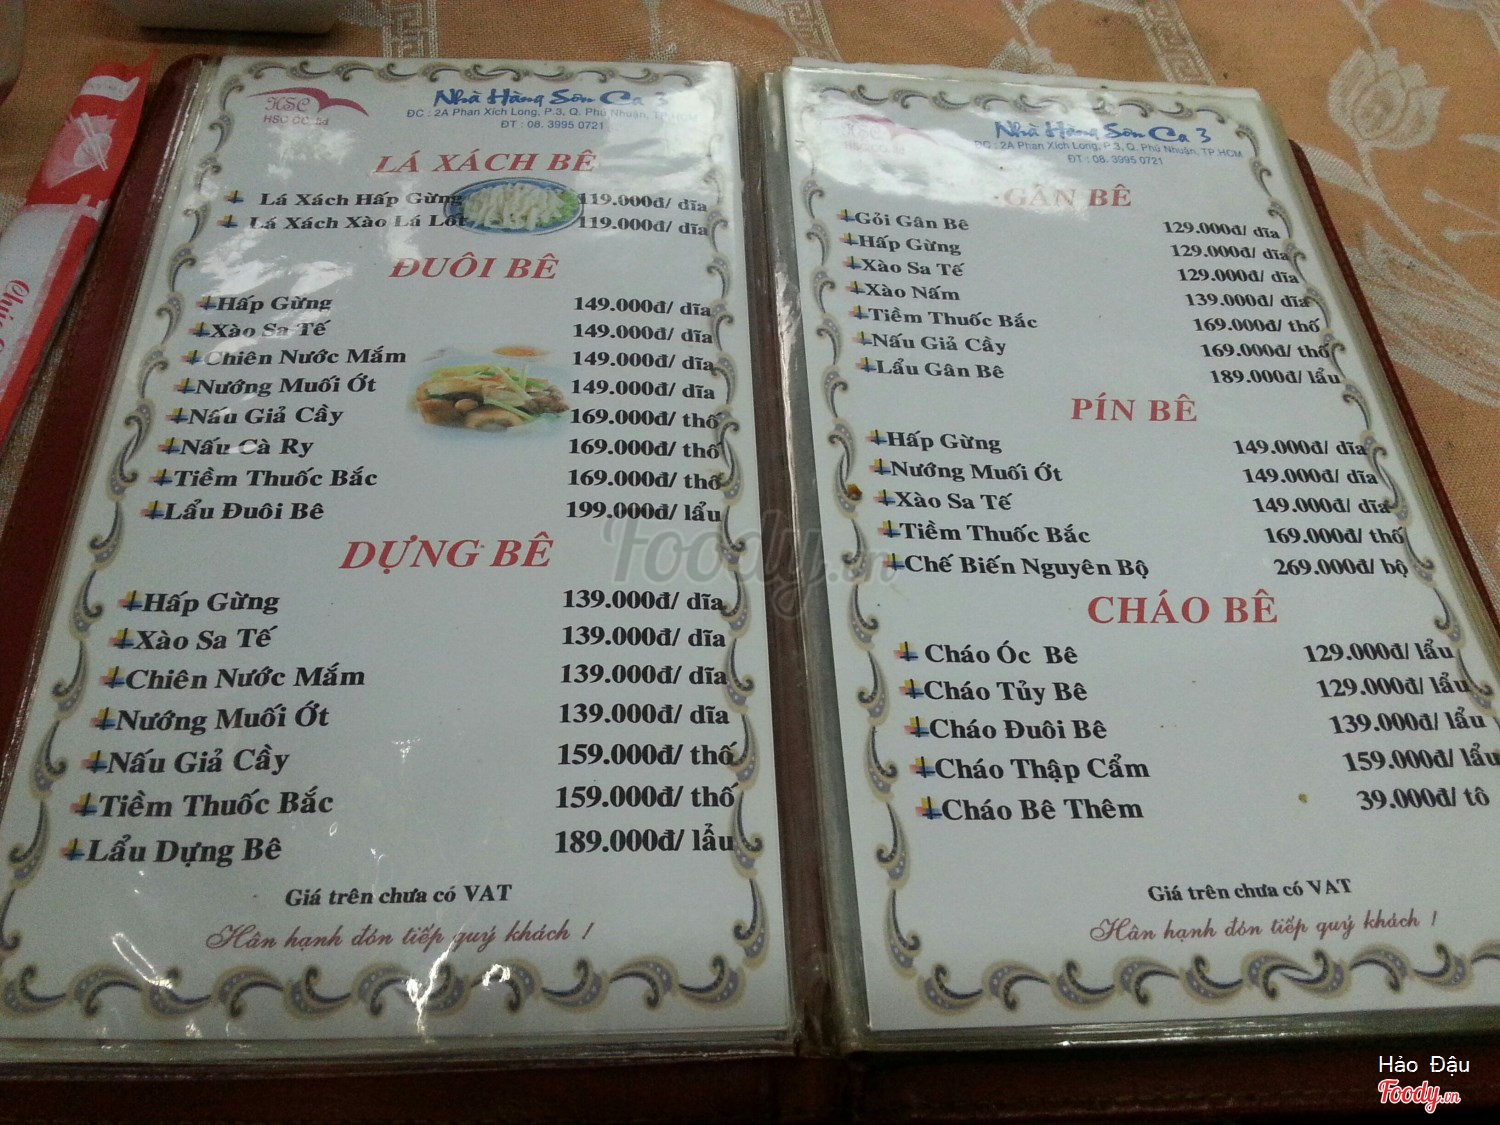 HSC
HSC CO.,Ltd
Nhà Hàng Sơn Ca 3
ĐC : 2A Phan Xích Long, P.3, Q. Phú Nhuận, TP.HCM
ĐT : 08. 3995 0721
LÁ XÁCH BÊ
Lá Xách Hấp Gừng 119.000đ/ dĩa
Lá Xách Xào Lá Lốt 119.000đ/ dĩa
ĐUÔI BÊ
Hấp Gừng 149.000đ/ dĩa
Xào Sa Tế 149.000đ/ dĩa
Chiên Nước Mắm 149.000đ/ dĩa
Nướng Muối Ớt 149.000đ/ dĩa
Nấu Giả Cầy 169.000đ/ thố
Nấu Cà Ry 169.000đ/ thố
Tiềm Thuốc Bắc 169.000đ/ thố
Lẩu Đuôi Bê 199.000đ/ lẩu
DỰNG BÊ
Hấp Gừng 139.000đ/ dĩa
Xào Sa Tế 139.000đ/ dĩa
Chiên Nước Mắm 139.000đ/ dĩa
Nướng Muối Ớt 139.000đ/ dĩa
Nấu Giả Cầy 159.000đ/ thố
Tiềm Thuốc Bắc 159.000đ/ thố
Lẩu Dựng Bê 189.000đ/ lẩu
Giá trên chưa có VAT
Hân hạnh đón tiếp quý khách !
HSC
HSC CO.,Ltd
Nhà Hàng Sơn Ca 3
ĐC : 2A Phan Xích Long, P.3, Q. Phú Nhuận, TP.HCM
ĐT : 08. 3995 0721
GÂN BÊ
Gỏi Gân Bê 129.000đ/ dĩa
Hấp Gừng 129.000đ/ dĩa
Xào Sa Tế 129.000đ/ dĩa
Xào Nấm 139.000đ/ dĩa
Tiềm Thuốc Bắc 169.000đ/ thố
Nấu Giả Cầy 169.000đ/ thố
Lẩu Gân Bê 189.000đ/ lẩu
PÍN BÊ
Hấp Gừng 149.000đ/ dĩa
Nướng Muối Ớt 149.000đ/ dĩa
Xào Sa Tế 149.000đ/ dĩa
Tiềm Thuốc Bắc 169.000đ/ thố
Chế Biến Nguyên Bộ 269.000đ/ bộ
CHÁO BÊ
Cháo Óc Bê 129.000đ/ lẩu
Cháo Tủy Bê 129.000đ/ lẩu
Cháo Đuôi Bê 139.000đ/ lẩu
Cháo Thập Cẩm 159.000đ/ lẩu
Cháo Bê Thêm 39.000đ/ tô
Giá trên chưa có VAT
Hân hạnh đón tiếp quý khách !
Foody.vn
Hảo Đậu
Foody.vn